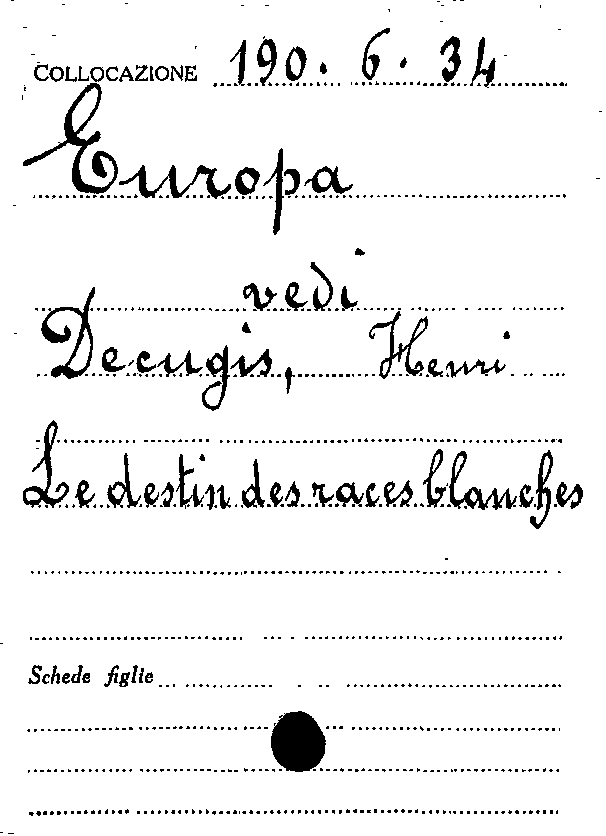 COLLOCAZIONE 190. 6. 34
Europa
vedi
Decugis, Henri
Le destin des races blanches
Schede figlie